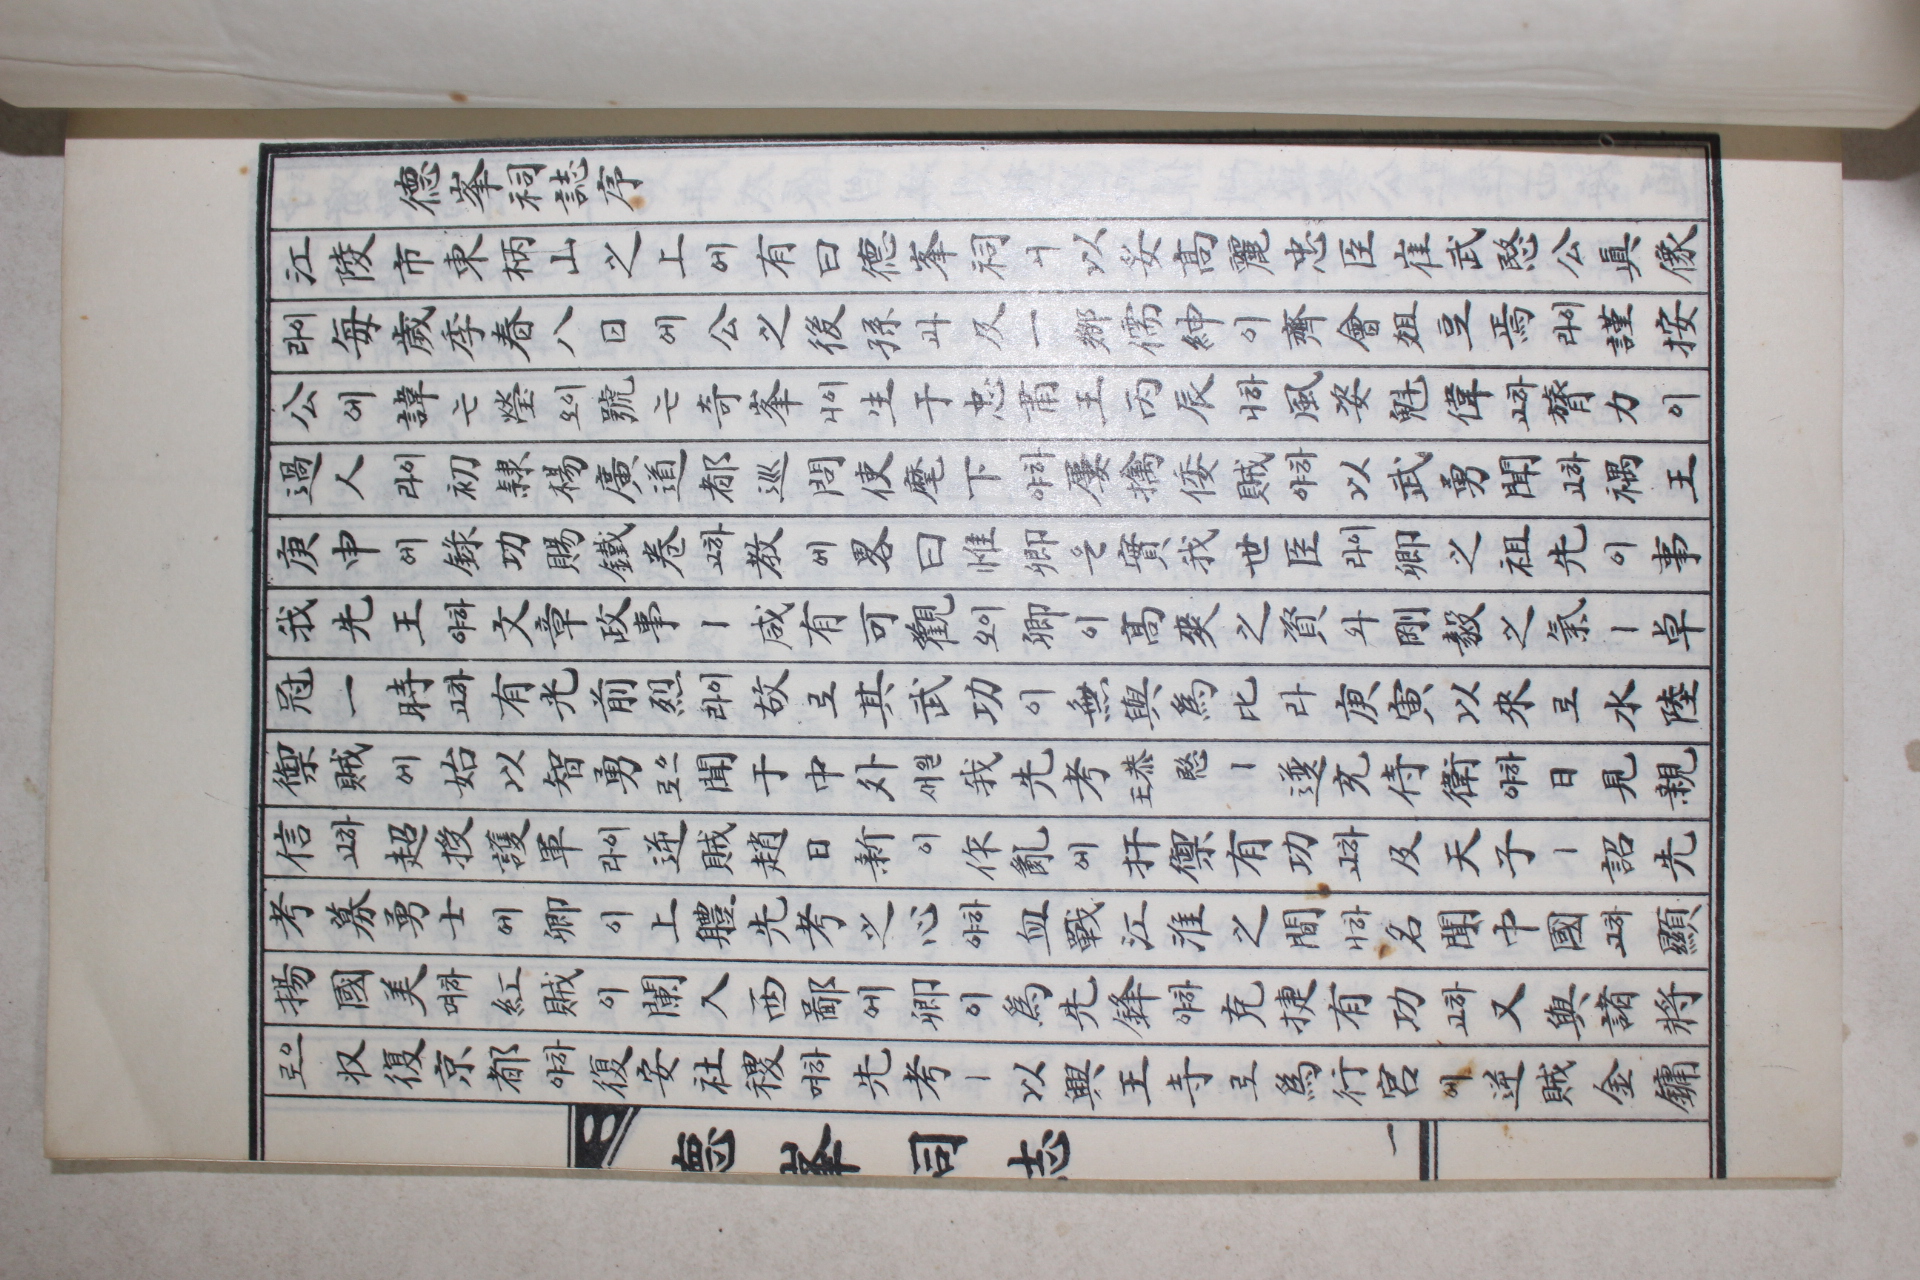 德峯祠誌序
江陵市東柄山之上에有曰德峯祠니以妥高麗忠臣崔武愍公眞像
이라每歲季春八日에公之後孫과及一鄕儒紳이齊會俎豆焉이라謹按
公에諱는瑩이오號는奇峯이니生于忠肅王丙辰하니風姿魁偉하고膂力이
過人이라初隷楊廣道都巡問使麾下하야屢擒倭賊하야以武勇聞하고禑王
庚申에錄功賜鐵卷하고教에畧曰惟卿은實我世臣이라卿之祖先이事
我先王하야文章政事ㅣ咸有可觀이오卿이高爽之資와剛毅之氣ㅣ卓
冠一時하고有光前烈이라故로其武功이無與爲比라庚寅以來로水陸
禦賊에始以智勇으로聞于中外일새我先考恭愍王ㅣ遂充侍衛하야日見親
信하고超授護軍이라逆賊趙日新이作亂에扞禦有功하고及天子ㅣ詔先
考募勇士에卿이上軆先考之心하야血戰江淮之間하니名聞中國하고顯
揚國美하며紅賊이闌入西鄙에卿이爲先鋒하야克捷有功하고又與諸將
으로収復京都하야復安社稷하며先考ㅣ以興王寺로爲行宮에逆賊金鏞
德峯祠志
一